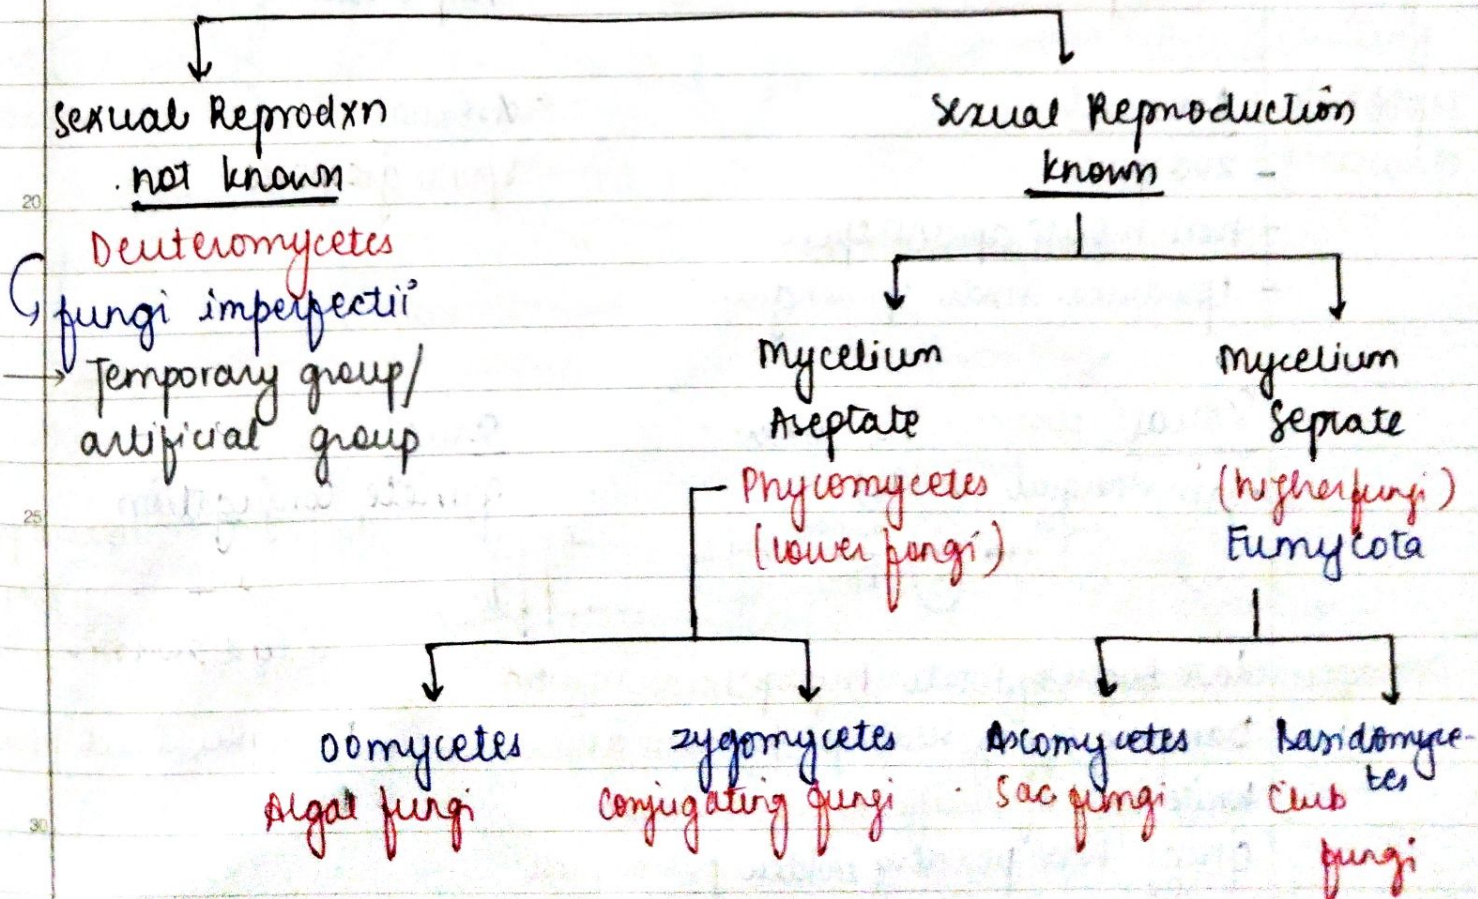 Sexual Reprodxn
not known
Deuteromycetes
fungi imperfectii
Temporary group/
artificial group
Sexual Reproduction
known
Mycelium
Aseptate
Phycomycetes
(lower fungi)
Mycelium
Septate
(higher fungi)
Eumycota
Oomycetes
Algal fungi
Zygomycetes
Conjugating fungi
Ascomycetes
Sac fungi
Basidomyce-
tes
Club
fungi
20
25
30